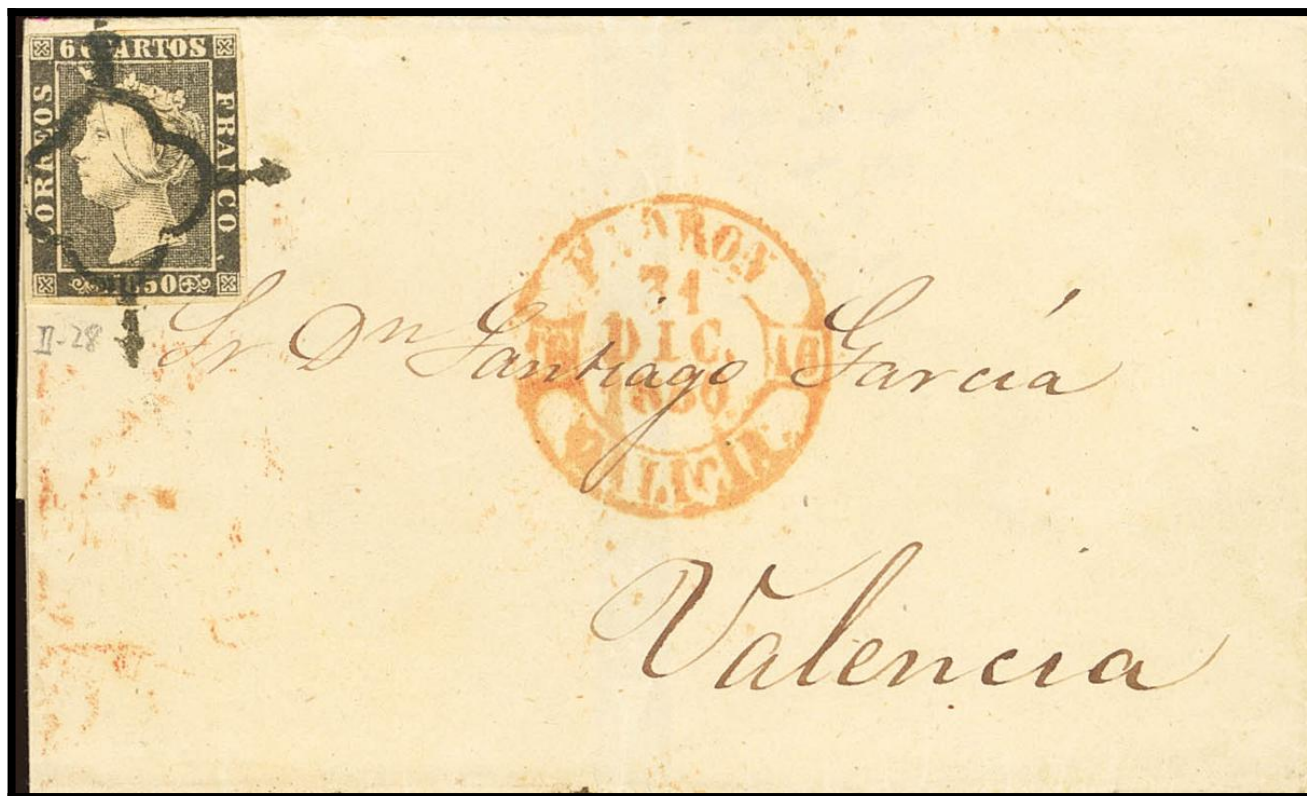 6 CUARTOS
CORREOS
FRANCO.
1850
II-28
PADRON
31
DIC.
1850
16
GALICIA
Sr Dn Santiago García
Valencia